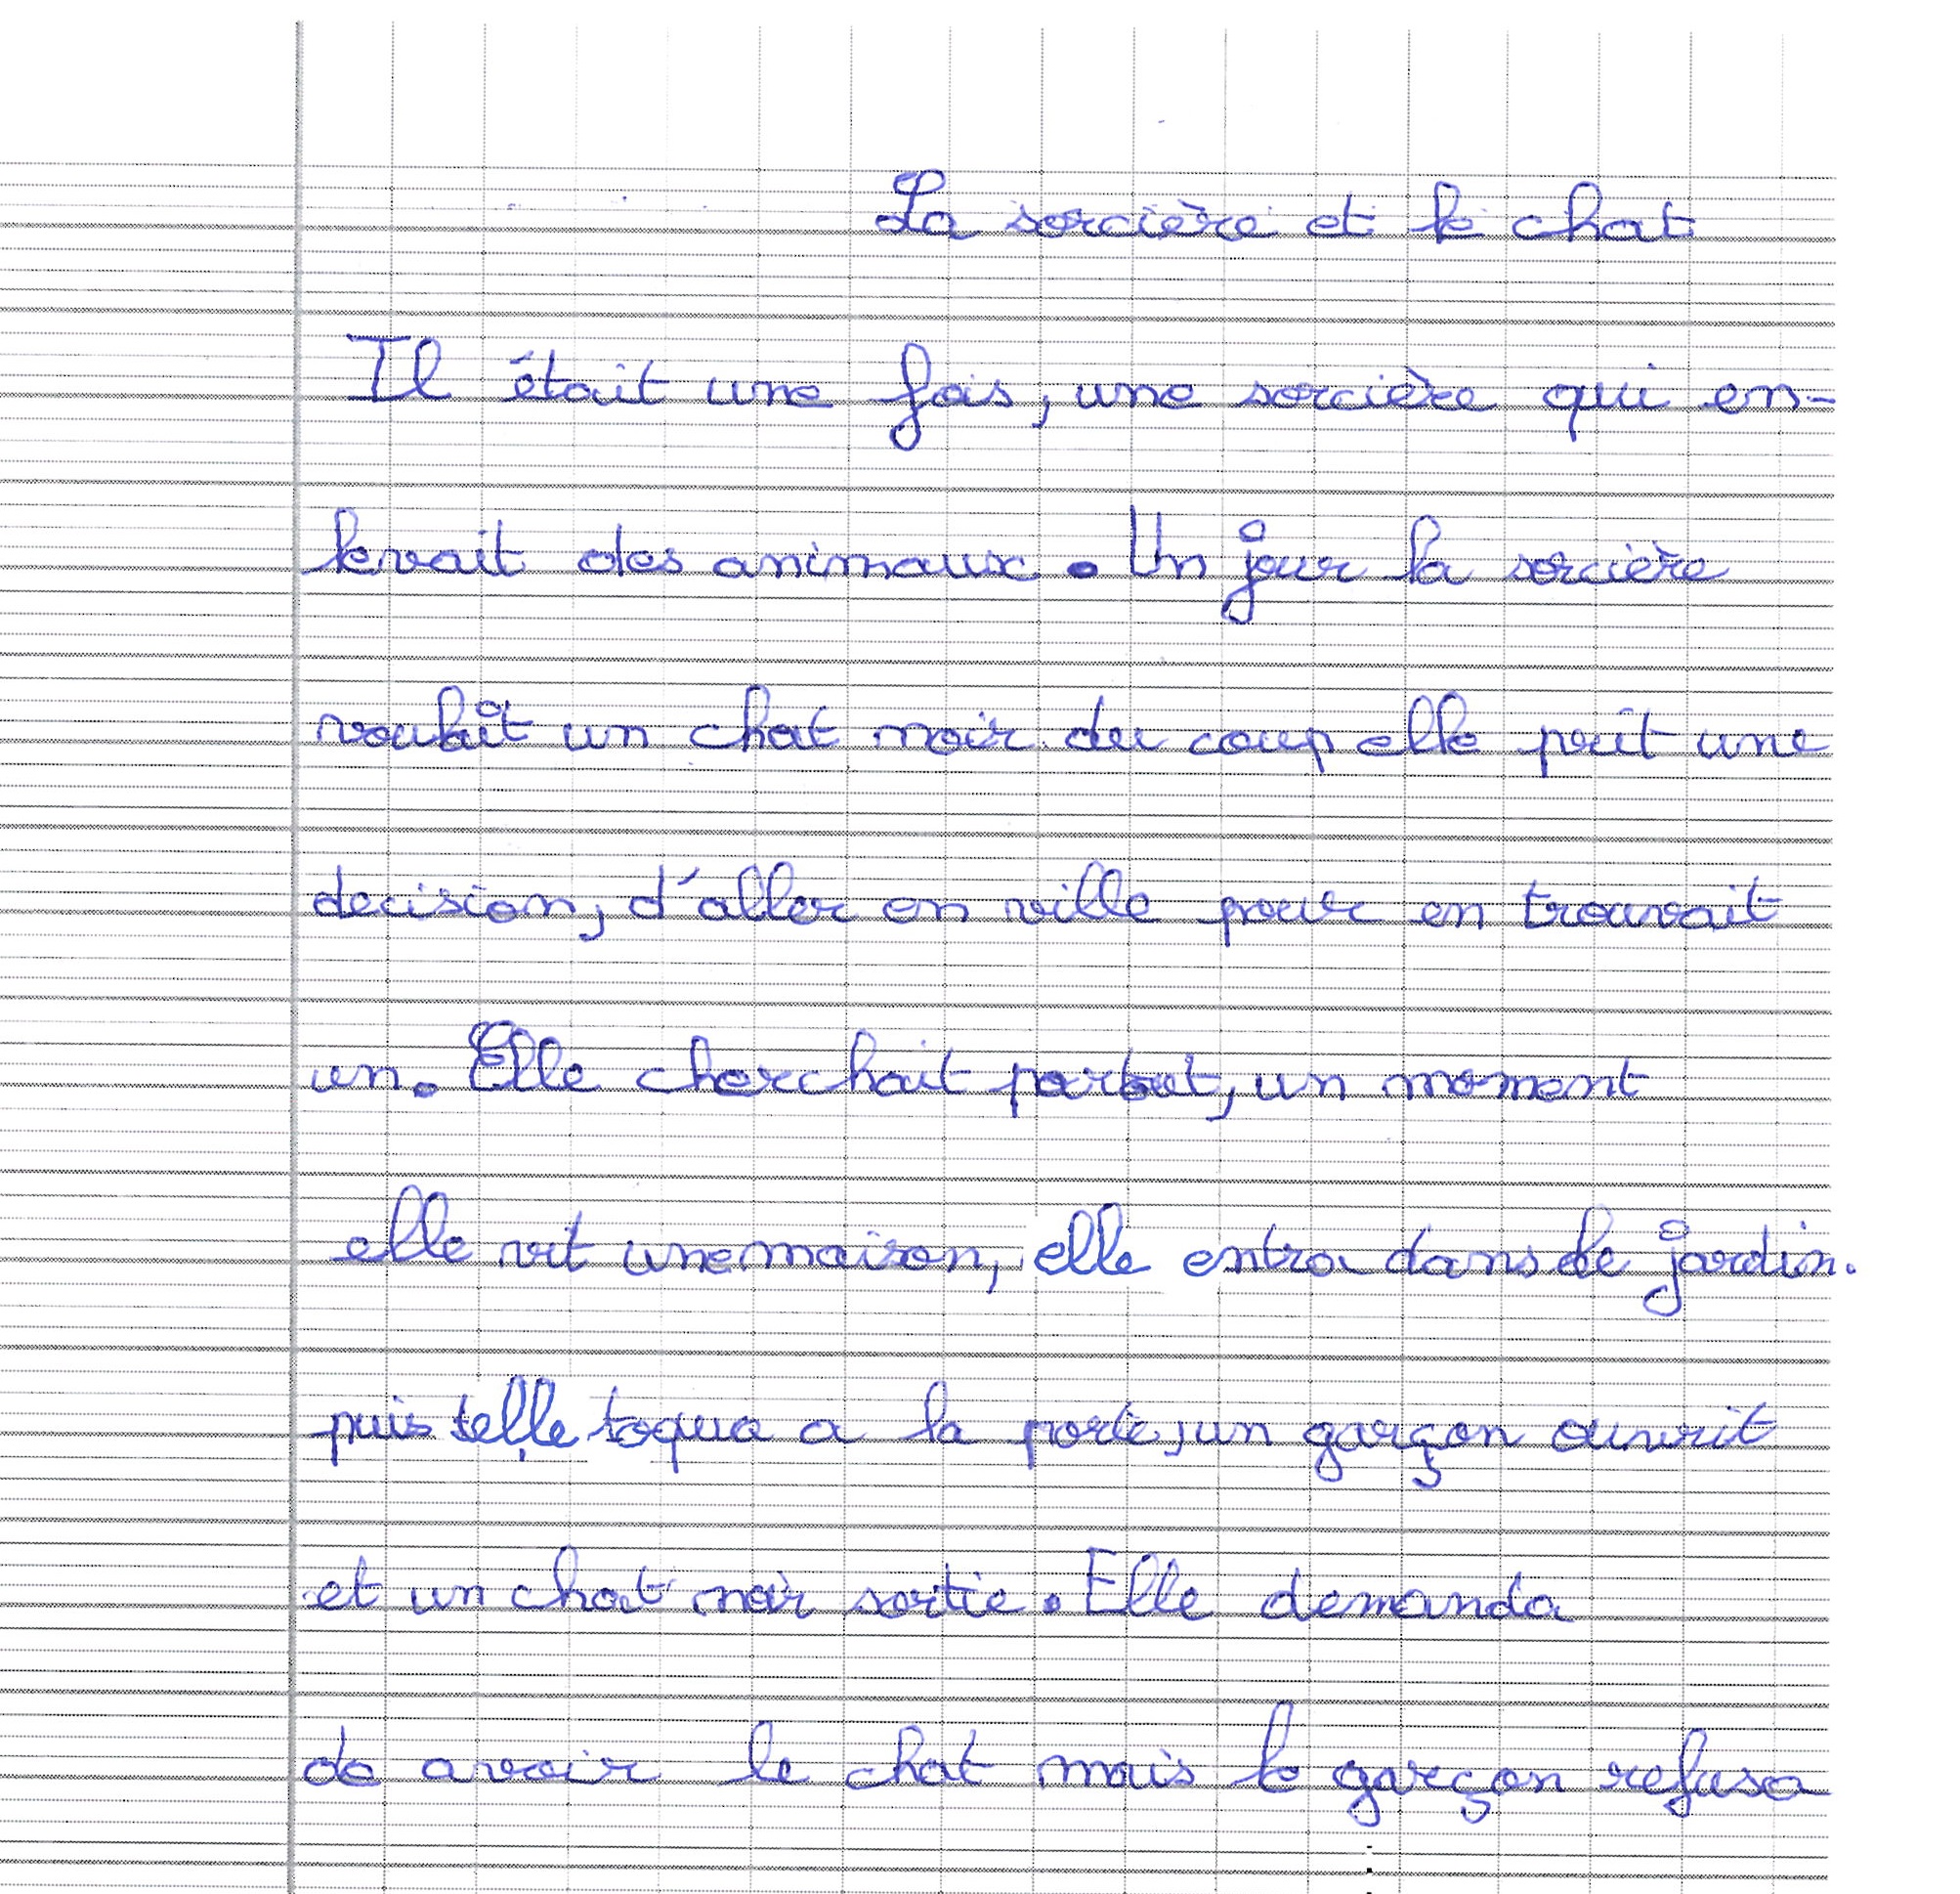 La sorcière et le chat
Il était une fois, une sorcière qui en-
levait des animaux. Un jour la sorcière
voulait un chat noir du coup elle prit une
decision, d'aller en ville pour en trouvait
un. Elle cherchait partout, un moment
elle vit une maison, elle entra dans le jardin.
puis elle toqua a la porte, un garçon ouvrit
et un chat noir sortie. Elle demanda
de avoir le chat mais le garçon refusa